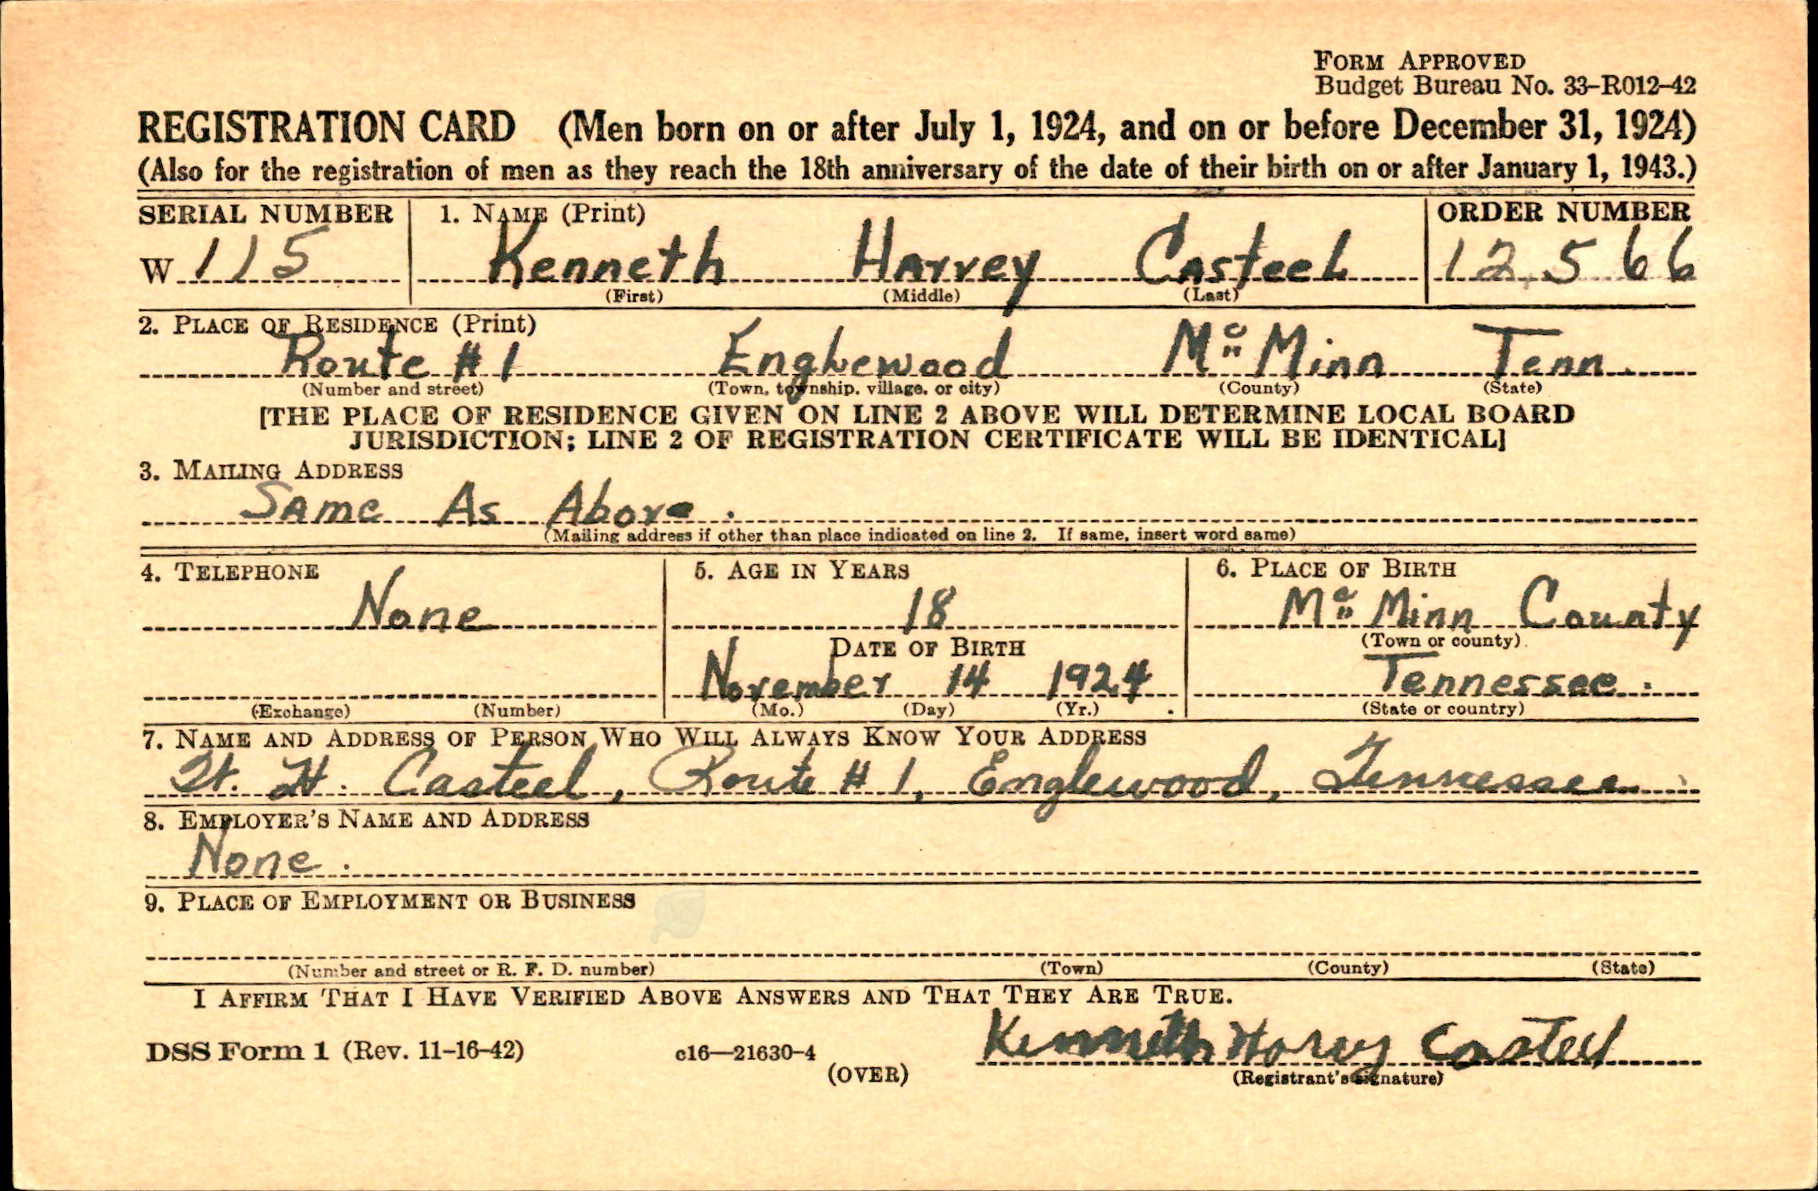 FORM APPROVED
Budget Bureau No. 33-R012-42
REGISTRATION CARD (Men born on or after July 1, 1924, and on or before December 31, 1924)
(Also for the registration of men as they reach the 18th anniversary of the date of their birth on or after January 1, 1943.)
SERIAL NUMBER 1. NAME (Print) ORDER NUMBER
W 115 Kenneth Harvey Casteel 12,566
(First) (Middle) (Last)
2. PLACE OF RESIDENCE (Print)
Route #1 Englewood Mc Minn Tenn.
(Number and street) (Town, township, village, or city) (County) (State)
[THE PLACE OF RESIDENCE GIVEN ON LINE 2 ABOVE WILL DETERMINE LOCAL BOARD
JURISDICTION; LINE 2 OF REGISTRATION CERTIFICATE WILL BE IDENTICAL]
3. MAILING ADDRESS
Same As Above.
(Mailing address if other than place indicated on line 2. If same, insert word same)
4. TELEPHONE 5. AGE IN YEARS 6. PLACE OF BIRTH
None 18 Mc Minn County
DATE OF BIRTH (Town or county)
November 14 1924 Tennessee.
(Exchange) (Number) (Mo.) (Day) (Yr.) (State or country)
7. NAME AND ADDRESS OF PERSON WHO WILL ALWAYS KNOW YOUR ADDRESS
H. Casteel, Route #1, Englewood, Tennessee
8. EMPLOYER'S NAME AND ADDRESS
None.
9. PLACE OF EMPLOYMENT OR BUSINESS
(Number and street or R. F. D. number) (Town) (County) (State)
I AFFIRM THAT I HAVE VERIFIED ABOVE ANSWERS AND THAT THEY ARE TRUE.
DSS Form 1 (Rev. 11-16-42) c16—21630-4 Kenneth Harvey Casteel
(OVER) (Registrant's signature)